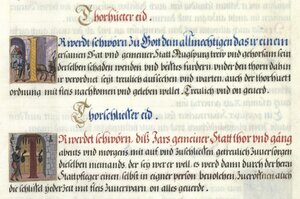 Thorhueter eid.
Ir werdt schwörn zu Got dem allmechtigen das ir einem
Ersamen Rat und gemeiner Stat Augspurg trew und gehorsam sein
derselben schaden wenden und bestes fürdern. und der thorn dahin
ir verordnet seyt treulich aussehen und warten. auch der thorhuett
ordnung mit fleis nachkommen und geleben wöllet. Treulich und on geuerd.
Thorschliesser eid.
Ir werdet schwörn, diß Jars gemeiner Statt thor und gäng
abents und morgens mit auf und zuschliessen getreulich zuuersorgen
dieselben niemands, der sey wer er well, es werd dann durch der herrn
Statpfleger einen selbst in eigner person beuolchen Zueröffnen auch
die schlüssl jederzeit mit fleis Zuuerwarn. on alles geuerde.